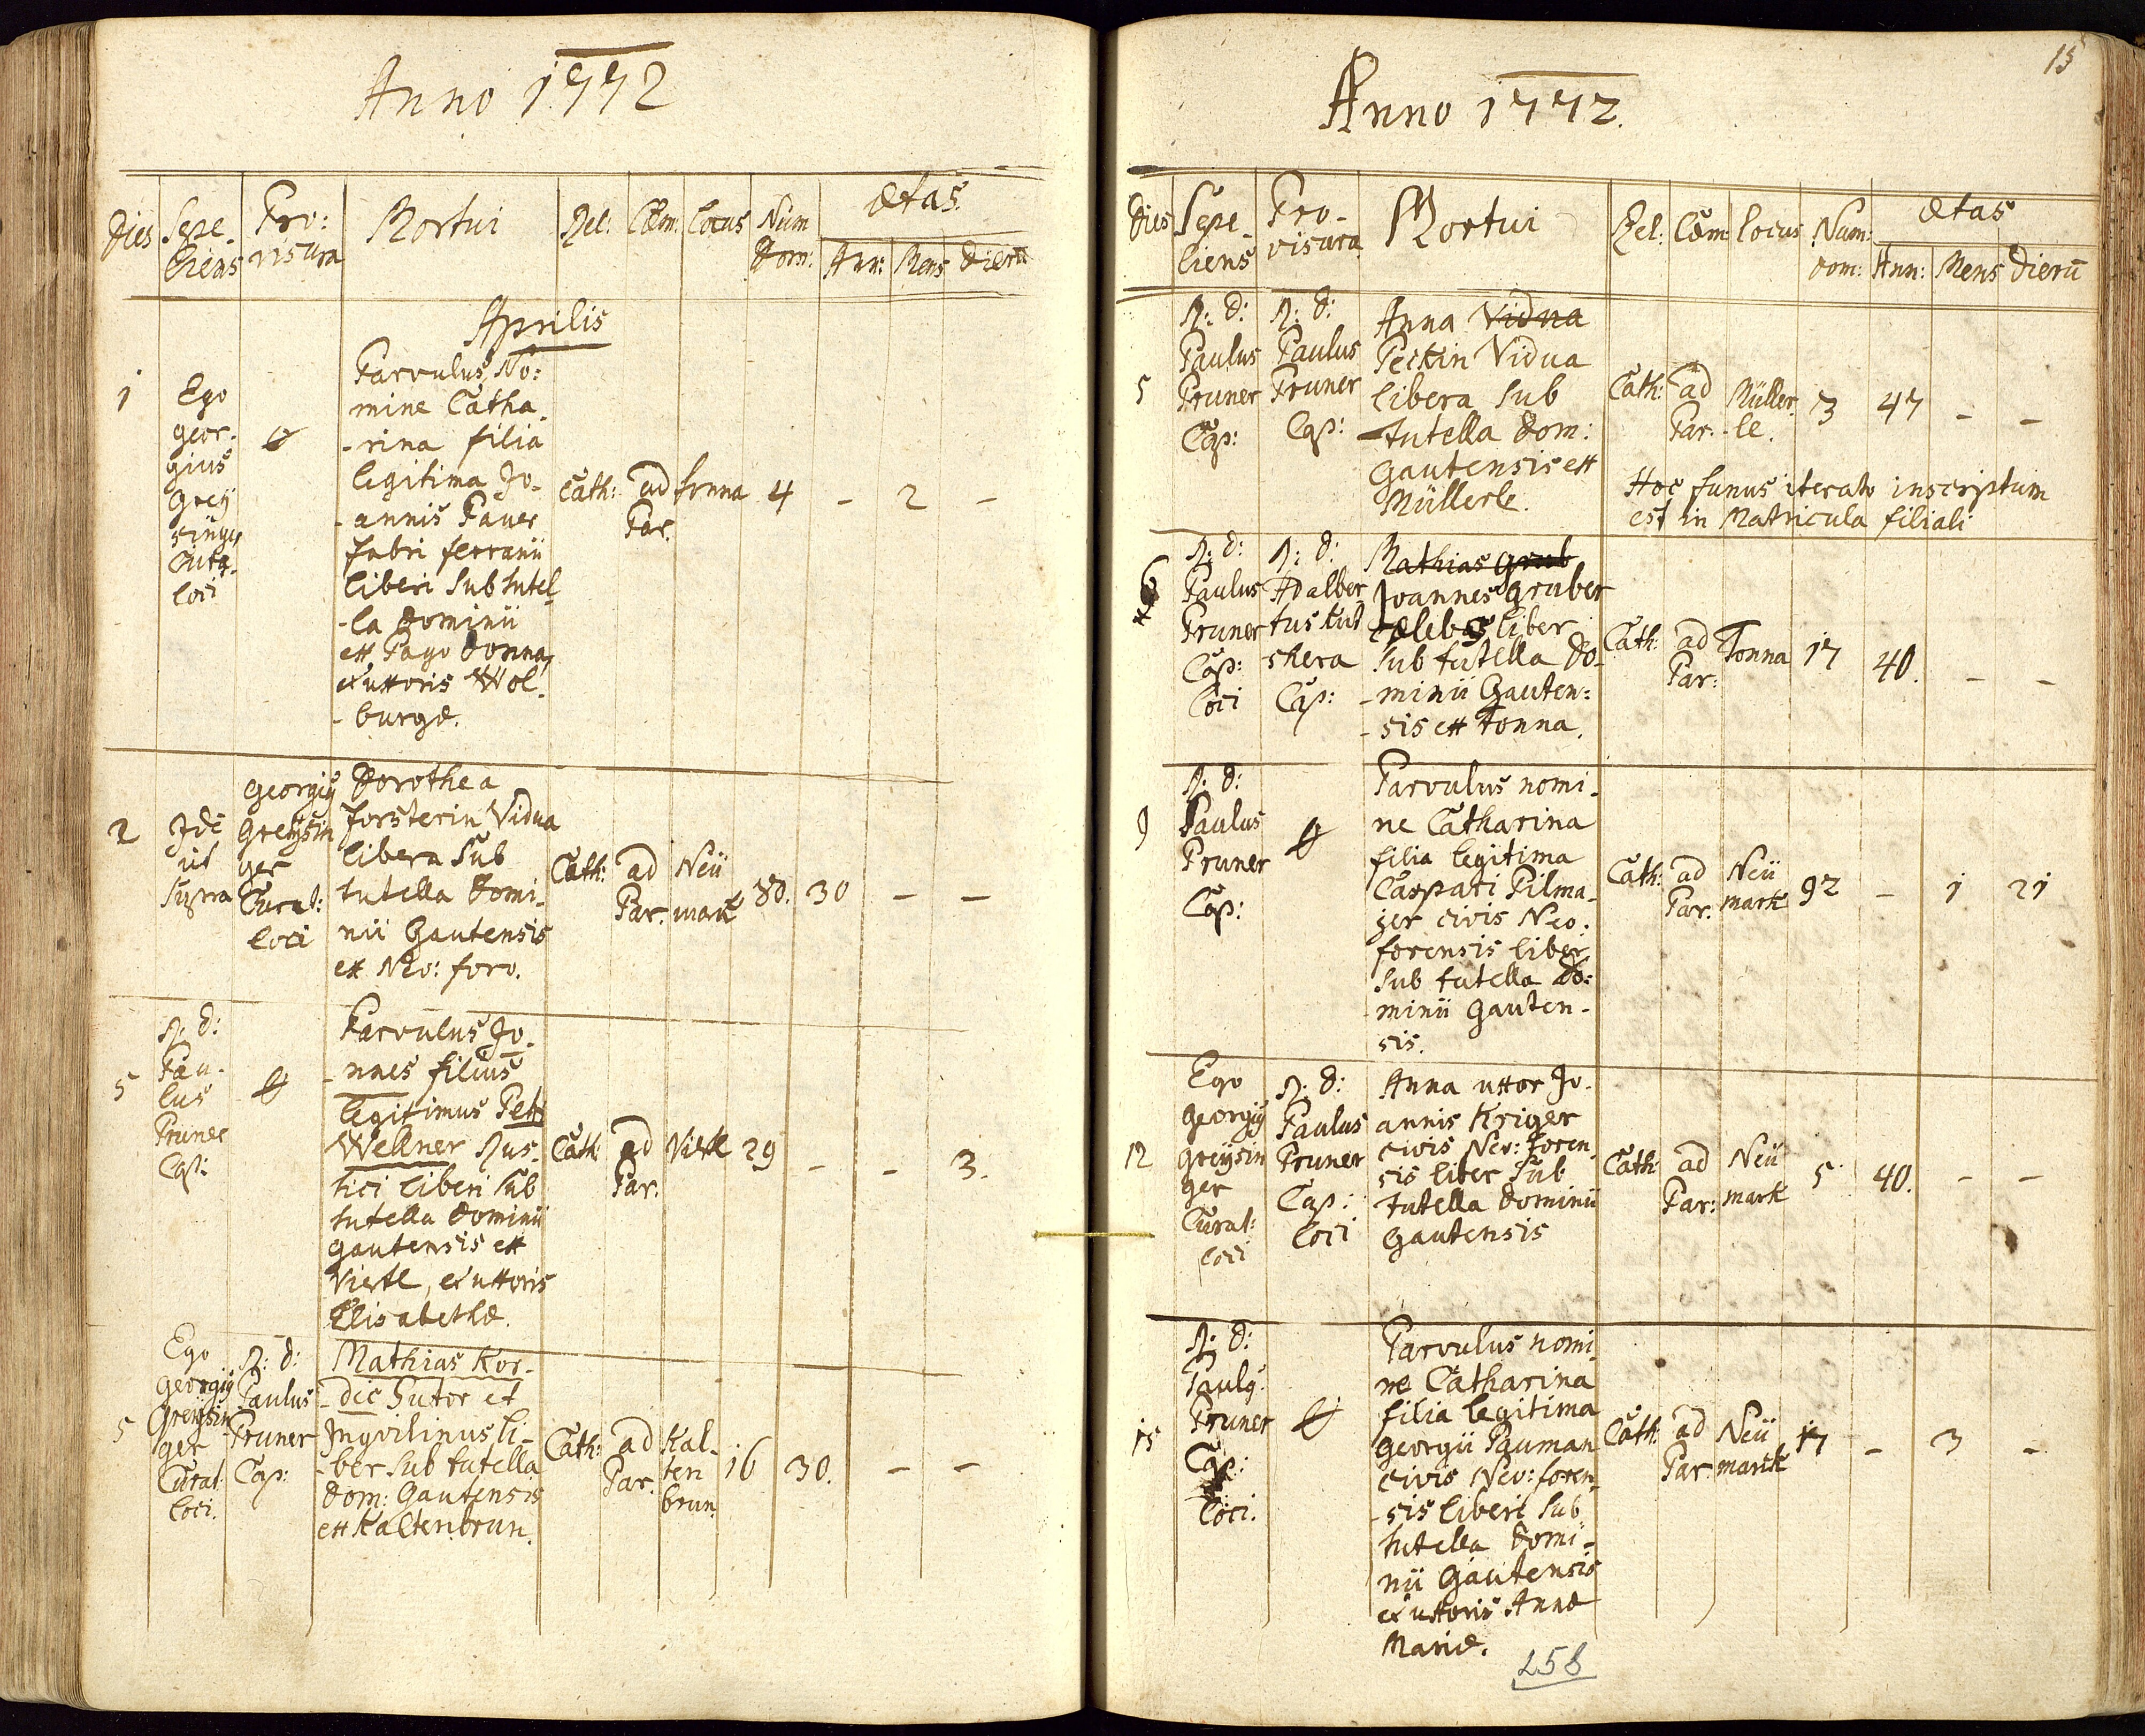 Anno 1772
Dies
Sepe-
liens
Pro:
visura
Mortui
Rel:
Cœm:
Locus
Num
Dom:
Ætas
Ann:
Mens
Dierū
Aprilis
1
Ego
Geor-
gius
Greÿ
singer
Curat.
loci
Parvulus No:
mine Catha-
-rina filia
legitima Jo-
-annis Paver
fabri ferrarii
liberi sub tutel-
-la Dominii
ex Pago Donna,
et uxoris Wol-
-burgæ.
Cath:
ad
Par.
4
-
2
-
2
Idē
ut
supra
Georgiꝰ
Greÿsin
ger
Curat:
loci
Dorothea
Forsterin Vidua
libera sub
tutella Domi-
nii Gautensis
ex Neo: foro.
Cath:
ad
Par.
Neü
mark
80.
30
-
-
5
R: D:
Pau-
lus
Pruner
Cap:
Parvulus Jo-
-nnes filius
legitimus Petri
Wellner Rus-
tici liberi sub
tutella Dominii
Gautensis ex
Viertl, et uxoris
Elisabethæ.
Cath:
ad
Par.
Viertl
29
-
-
3.
5
Ego
Georgiꝰ
Greÿsin
ger
Curat.
loci.
R: D:
Paulus
Pruner
Cap:
Mathias Kor-
-dic Sutor et
Inqvilinus li-
-ber sub tutella
Dom: Gautensis
ex Kaltenbrun.
Cath:
ad
Par.
Kal-
ten
brun.
16
30.
-
-
15
Anno 1772.
Dies
Sepe-
liens
Pro-
visura
Mortui
Rel:
Cœm
Locus
Num:
dom:
Ætas
Ann:
Mens
Dierū
5
R: D:
Paulus
Pruner
Cap:
R: D:
Paulus
Pruner
Cap:
Anna Vidua
Peckin Vidua
libera sub
tutella Dom:
Gautensis ex
Müllerle.
Cath:
ad
Par.
Müller-
le.
3
47
-
-
Hoc funus iterato inscriptum
est in Matricula filiali
6
R: D:
Paulus
Pruner
Cap:
loci
R: D:
Adalber
tus Kut
schera
Cap:
Mathias Grub
Joannes Gruber
cælebs liber
sub tutella Do-
-minii Gauten:
-sis ex Tonna.
Cath:
ad
Par:
Tonna
17
40.
-
-
9
R: D:
Paulus
Pruner
Cap:
Parvulus nomi-
ne Catharina
filia legitima
Caspari Pilma-
jer civis Neo:
forensis liber
sub tutella Do:
minii Gauten-
sis.
Cath:
ad
Par.
Neü
mark
92
-
1
21
12
Ego
Georgiꝰ
Greÿsin
ger
Curat:
loci
R: D:
Paulus
Pruner
Cap:
loci
Anna uxor Jo-
annis Kriger
civis Neo: foren-
sis liber sub
tutella Dominii
Gautensis
Cath:
ad
Par:
Neü
mark
5
40.
-
-
15
R: D:
Paulꝰ
Pruner
Cap:
loci.
Parvulus nomi-
ne Catharina
filia legitima
Georgii Pauman
civis Neo: foren-
-sis liberi sub
tutella Domi-
nii Gautensis
et uxoris Annæ
Mariæ.
Cath:
ad
Par.
Neü
markt
17
-
3
-
258